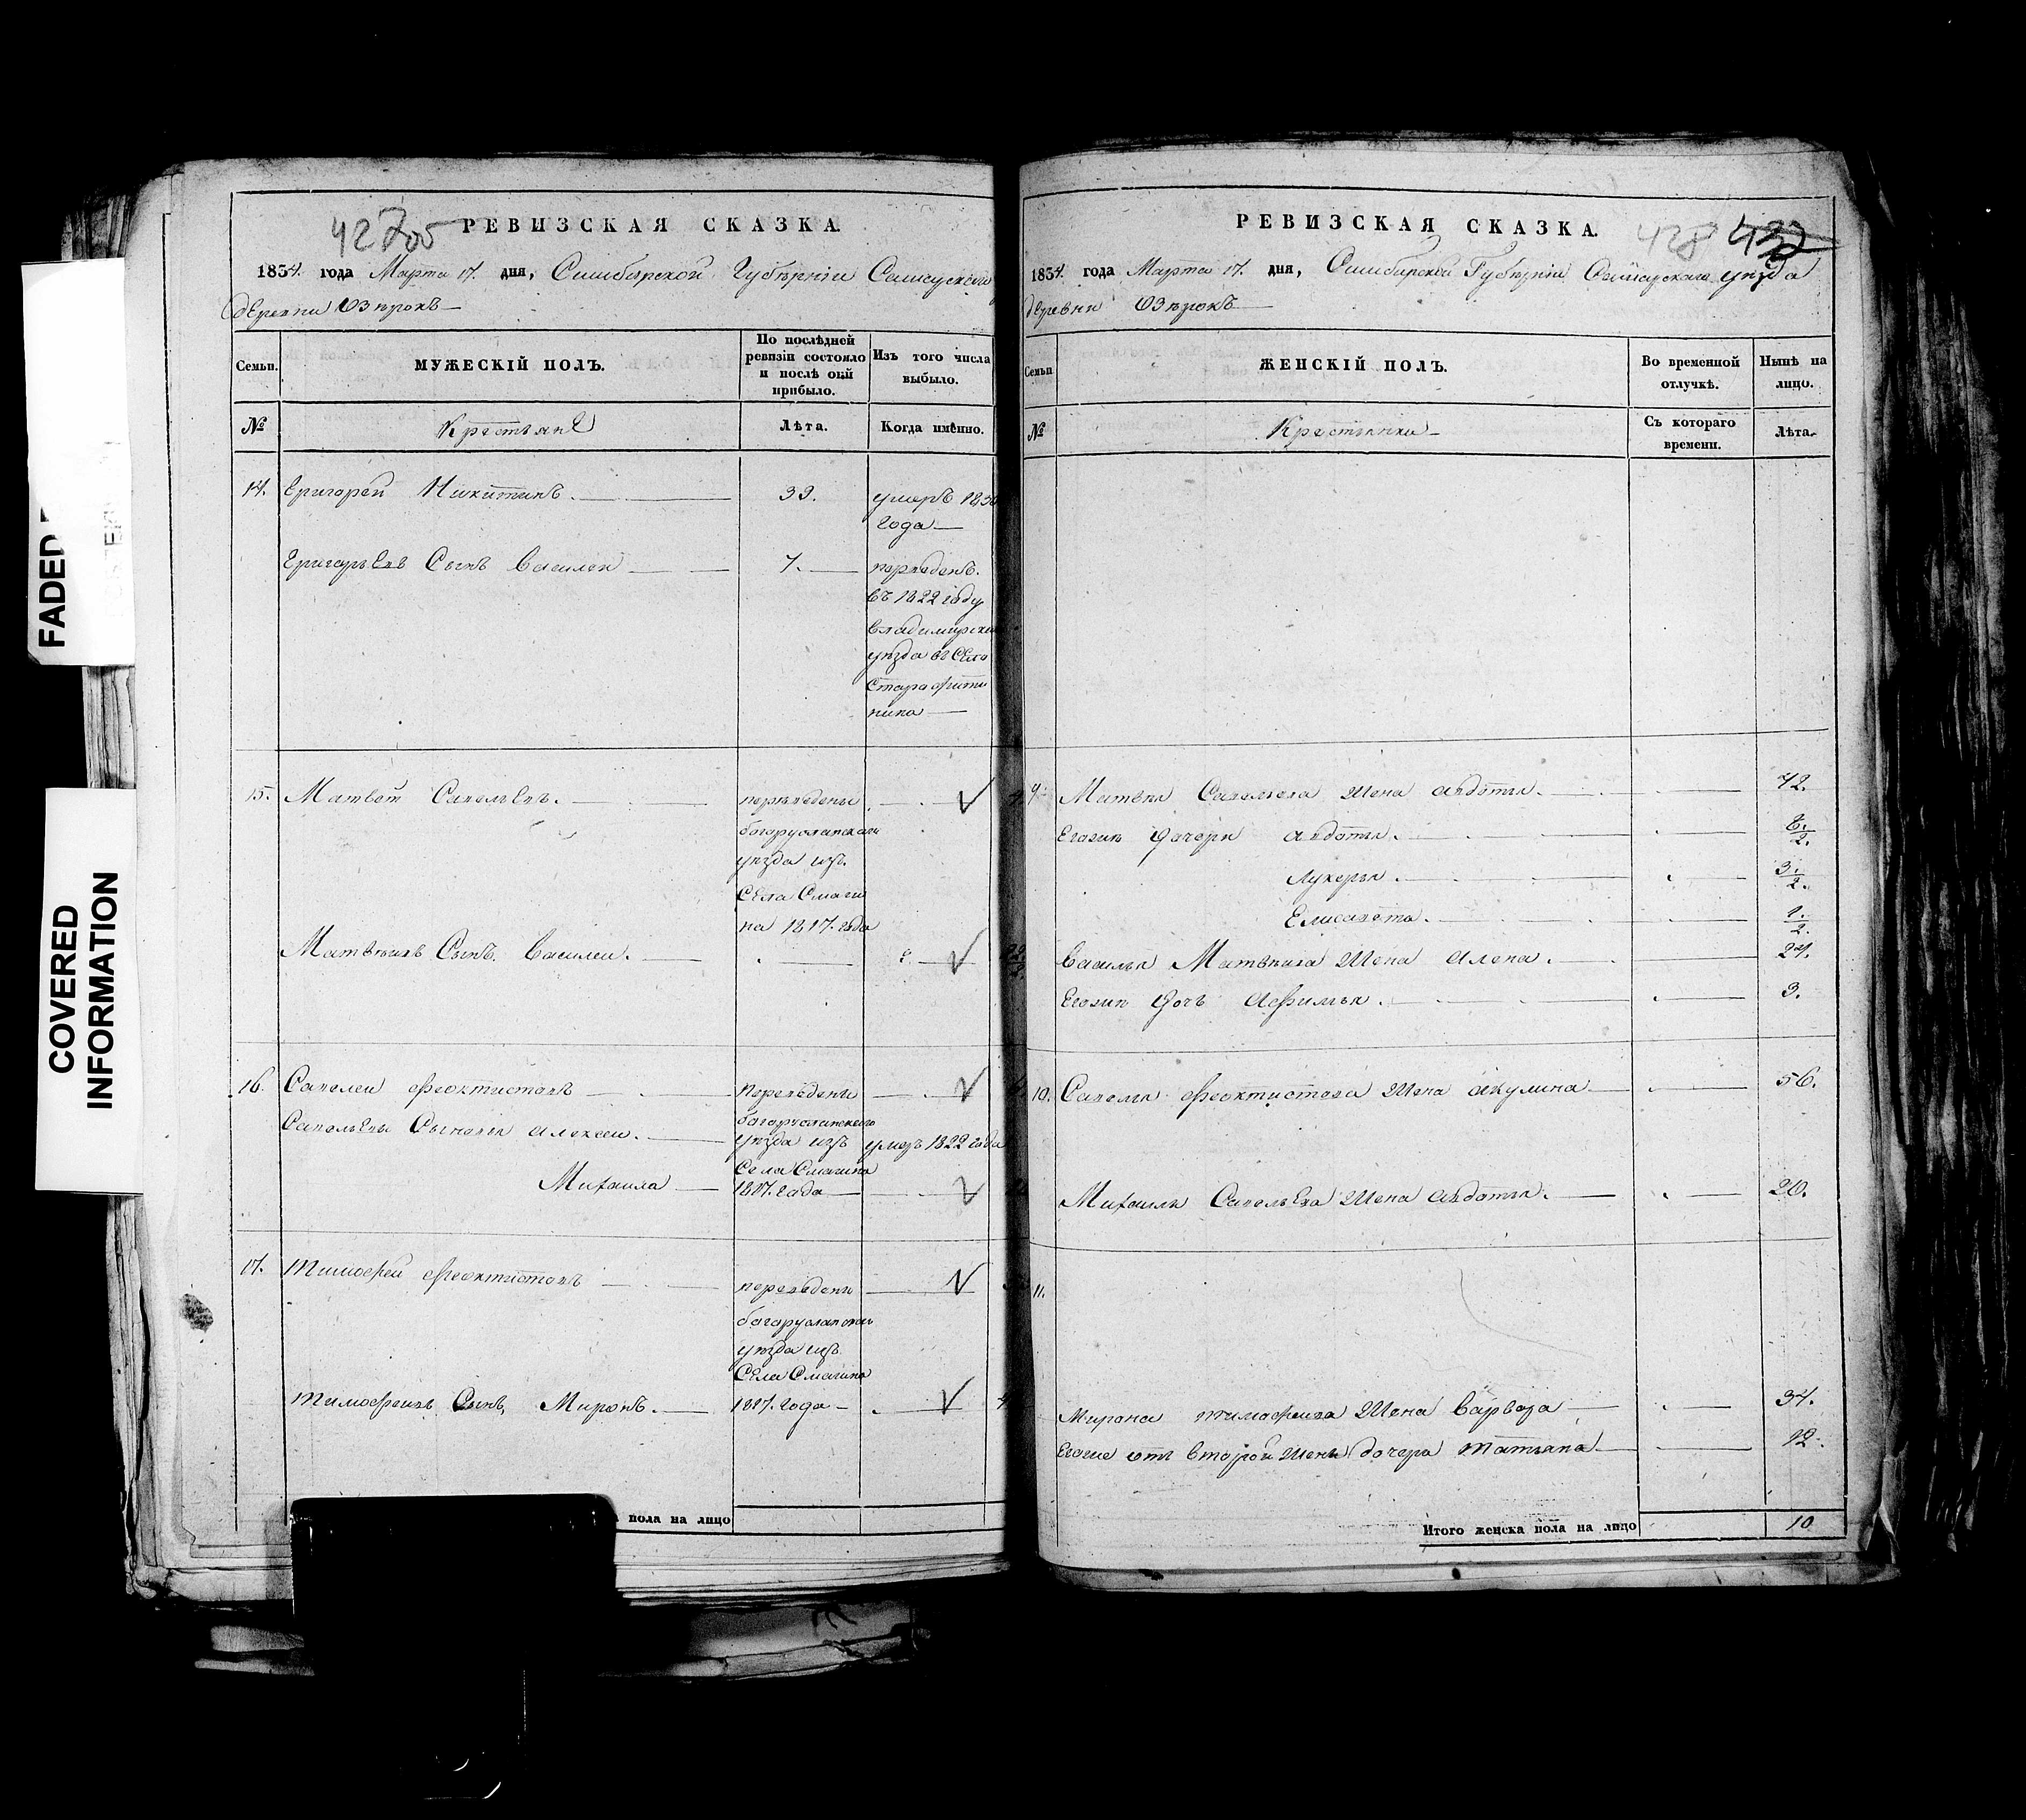 FADED
COVERED
INFORMATION
427
РЕВИЗСКАЯ СКАЗКА.
1834. года Марта 17. дня, Симбирской Губерніи Самарскаго
деревни Озерокъ
Семьи.
МУЖЕСКІЙ ПОЛЪ.
По послѣдней
ревизіи состояло
и послѣ оной
прибыло.
Изъ того числа
выбыло.
№
Крестьяне
Лѣта.
Когда именно.
14.
Григорей Никитинъ.
33.
умеръ
года
Григорьевъ Сынъ Василеи
7.
переведенъ
въ 1822 году
уезда въ Село
15.
Матвей Савельевъ.
переведены
бугурусланскаго
уезда изъ
Села Смаги
на 1817. года
Матвеивъ Сынъ. Василеи.
16.
Савелеи Феоктистовъ
Переведены
бугурусланскаго
Савельевы Сыновья Алексеи.
уезда изъ
умеръ 1822 года
Села Смагина
Михаила
1817. года
17.
Тимофей Феоктистовъ
переведены
бугурусланскаго
уезда изъ
Села Смагина
Тимофеивъ Сынъ, Миронъ.
1817. года
пола на лицо
РЕВИЗСКАЯ СКАЗКА.
428
1834. года Марта 17. дня, Симбирской Губерніи уезда
деревни Озерокъ
Семьи
ЖЕНСКІЙ ПОЛЪ.
Во временной
отлучкѣ.
Нынѣ на
лицо.
№
Крестьянки
Съ котораго
времени.
Лѣта.
9.
Матвея Савельева Жена Авдотья.
42.
Егоже Дочери Авдотья.
6. 1/2.
Лукерья.
3. 1/2.
Елисавета.
1/2.
Василья Матвеива Жена Алена.
24.
Егоже Дочь Афимья.
3.
10.
Савелья Феоктистова Жена Акулина
56.
Михаилы Савельева Жена Авдотья.
20.
11.
Мирона Тимофеива Жена Варвара
34.
Егоже отъ Второй Жены дочера Татьяна
12.
Итого женска пола на лицо
10